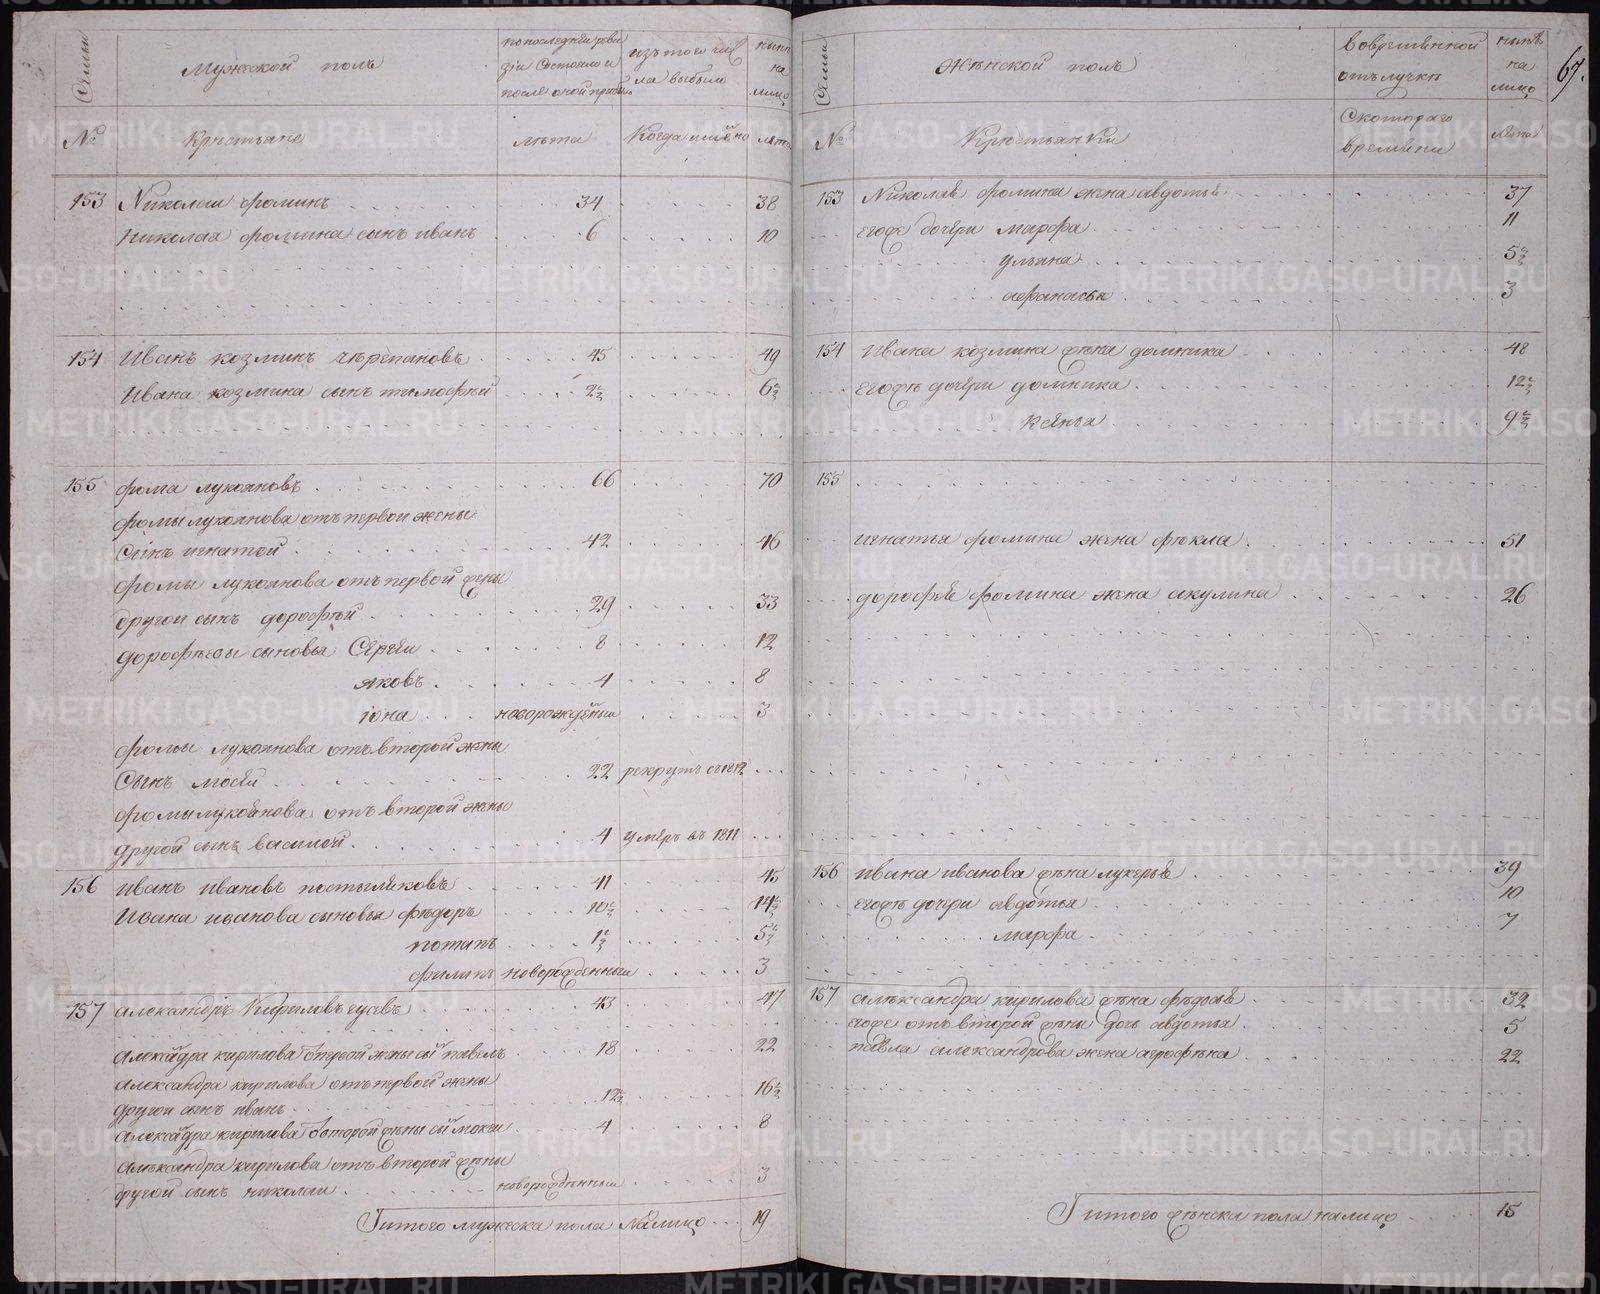 Семьи
Мужеской полъ
по последней реви
зіи состояло и
после оной прибы
изъ того чис
ла выбыло
ныне
на
лицо
№
Крестьяне
лета
Когда именно
лета
153 Николаи фоминъ 34 38
николая фомина сынъ иванъ 6 10
154 Иванъ козминъ черепановъ 45 49
Ивана козмина сынъ тимофеи 2½ 6½
155 фома лукояновъ 66 70
фомы лукоянова отъ первой жены
сынъ игнатей 42 46
фомы лукоянова отъ первой жены
другой сынъ дорофей 29 33
дорофеевы сыновья Сергеи 8 12
яковъ 4 8
іона новорожденыи 3
фомы лукоянова отъ второй жены
Сынъ мосеи 22 рекрутъ съ 1812
фомы лукоянова отъ второй жены
другой сынъ василей 4 умеръ въ 1811
156 иванъ ивановъ постыляковъ 41 45
Ивана иванова сыновья федоръ 10½ 14½
потапъ 1½ 5½
филипъ новорожденныи 3
157 александръ Кириловъ гусевъ 43 47
александра кирилова отпервой жены сынъ павелъ 18 22
александра кирилова отъ первой жены
другой сынъ иванъ 12½ 16½
александра кирилова отвторой жены сынъ мокеи 4 8
александра кирилова отъ второй жены
другой сынъ николаи новорожденныи 3
итого мужеска пола налицо 19
67.
Семьи
Женской полъ
во временной
отлучке
ныне
на
лицо
№
Крестьянки
Скотораго
времени
лета
153 Николае фомина жена авдотья 37
егоже дочери марфа 11
ульяна 5½
афанасья 3
154 Ивана козмина жена домника 48
егоже дочери домника 12½
ксенья 9½
155
игнатья фомина жена фекла 51
дорофее фомина жена акулина 26
156 ивана иванова жена лукерья 39
егоже дочери авдотья 10
марфа 7
157 александра кирилова жена федосья 32
егоже отъ второй жены дочь авдотья 5
павла александрова жена агрофена 22
итого женска пола налицо 15
METRIKI.GASO-URAL.RU